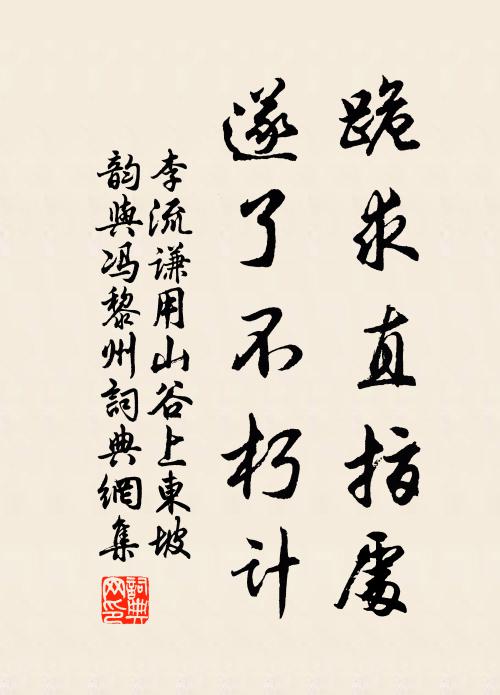 跪求直指處
遂了不朽计
李流谦用山谷上東坡
韵與冯黎州詞典網集
詞典网印